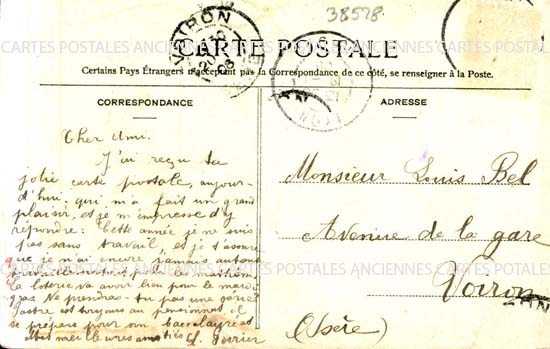 38578.
VOIRON
CARTE POSTALE
CARTES POSTALES ANCIENNES
Certains Pays Étrangers n'acceptant pas la Correspondance de ce côté, se renseigner à la Poste.
CORRESPONDANCE
Cher Ami.
J'ai reçu ta
jolie carte postale, aujour-
d'hui, qui m'a fait un grand
plaisir, et je m'empresse d'y
répondre. Cette année je ne suis
pas sans travail, et je t'assure
que je n'ai encore jamais autant
la loterie va avoir lieu pour le mardi
gras. Ne prendras-tu pas une
est toujours au pensionnat, il
se prépare pour son
meilleures amitiés
ADRESSE
Monsieur Louis Bel
Avenue de la gare
Voiron
(Isère)